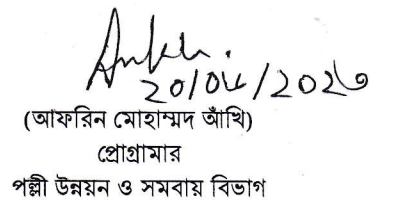 ২০/০৮/২০২৩
(আফরিন মোহাম্মদ আঁখি)
প্রোগ্রামার
পল্লী উন্নয়ন ও সমবায় বিভাগ